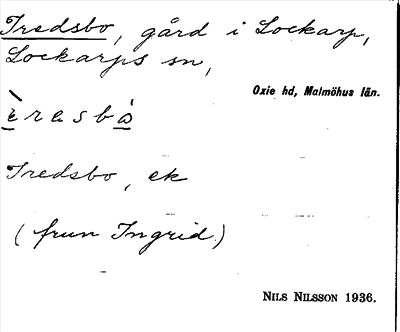 Fredsbo, gård i Lockarp,
Lockarps sn,
Oxie hd, Malmöhus län.
Fredsbo, ek
(frun Ingrid)
NILS NILSSON 1936.